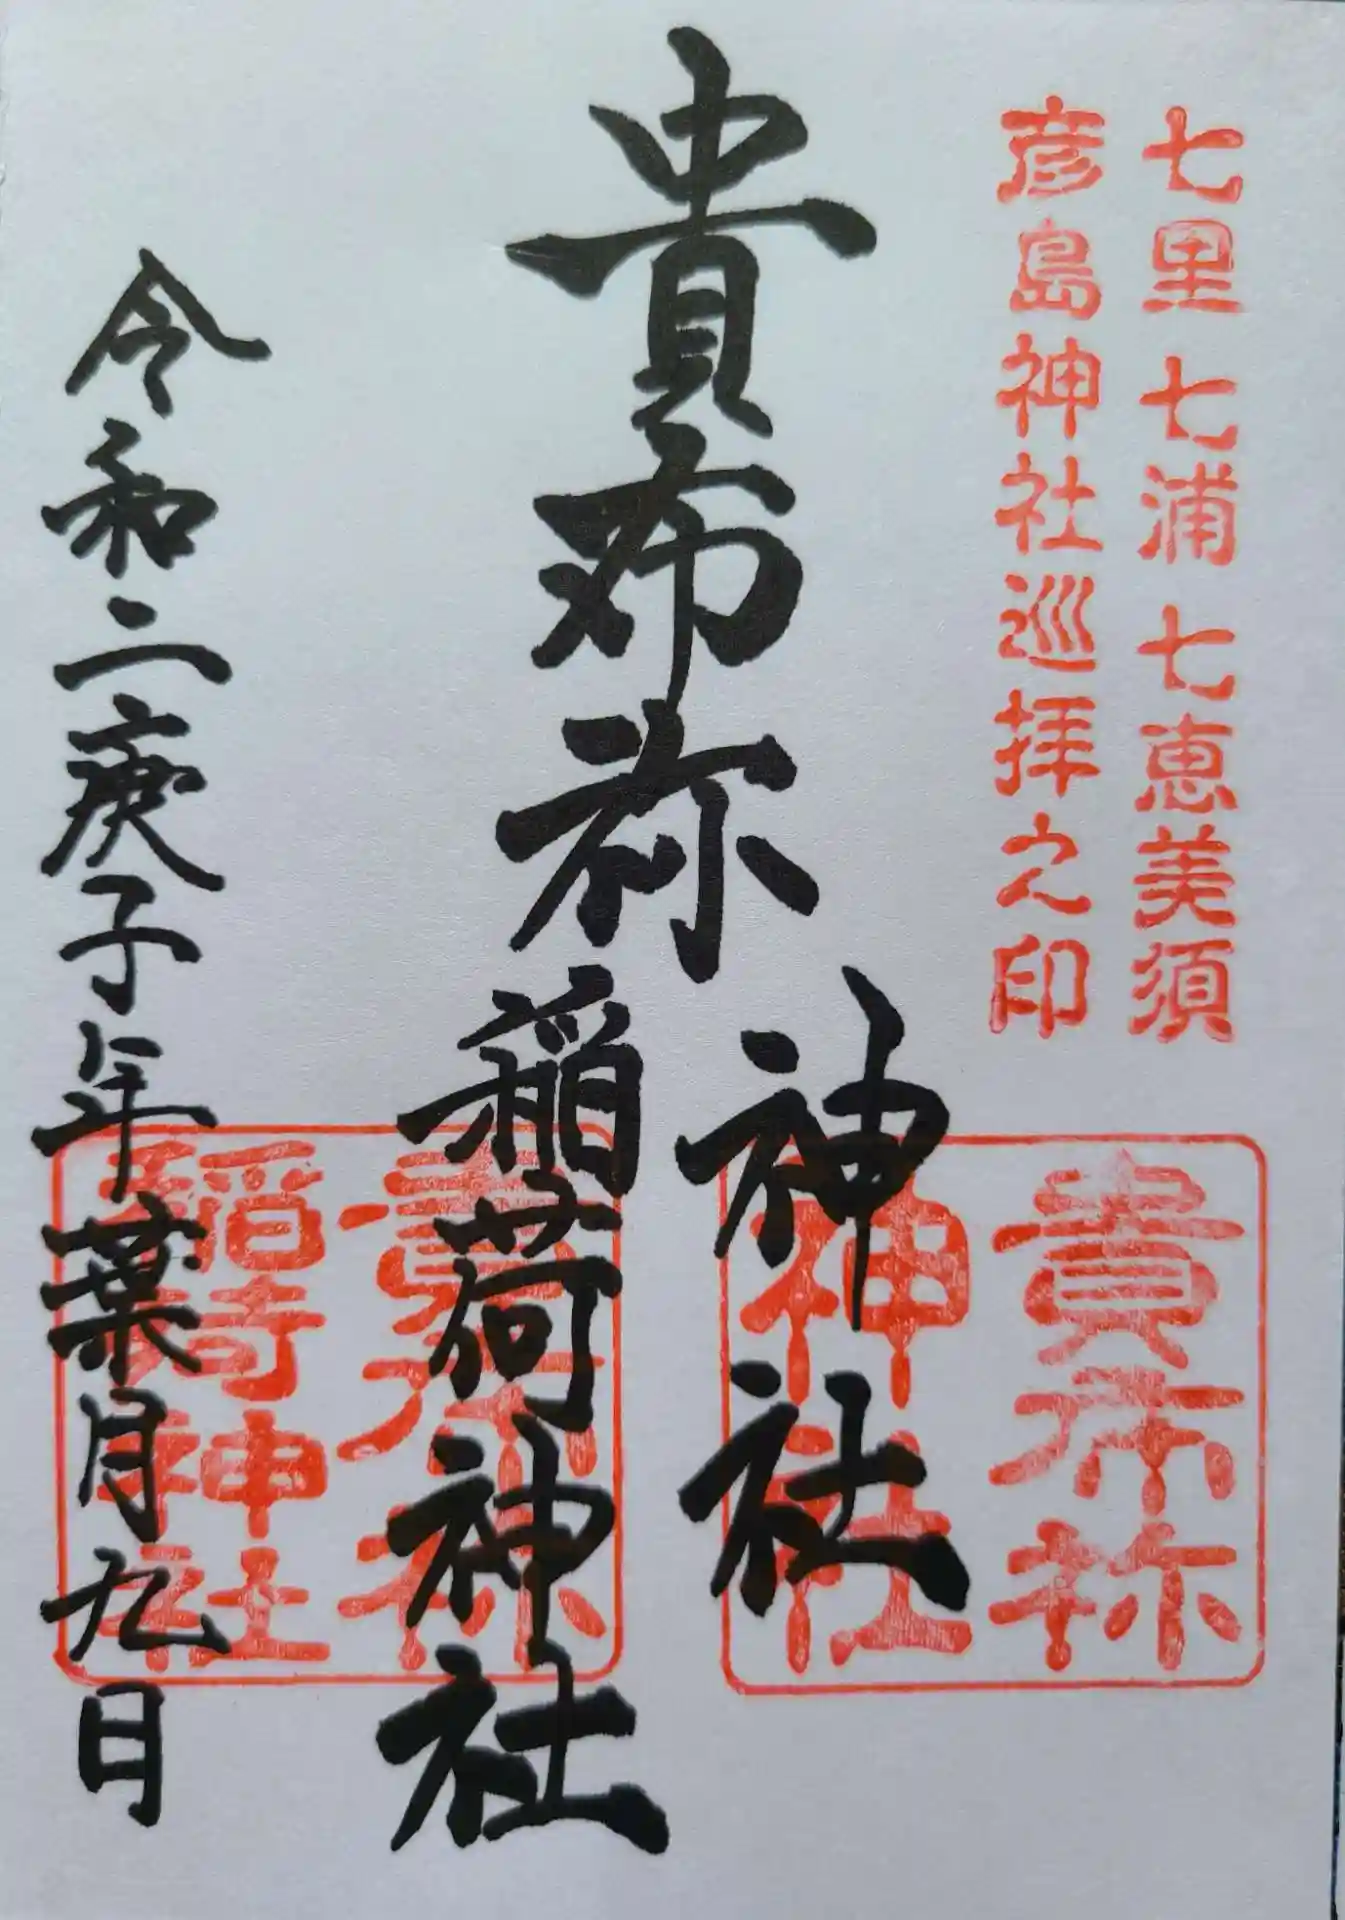 七里七浦七恵美須
彦島神社巡拝之印
貴布祢
神社
稲荷神社
令和二庚子年葉月九日
貴布祢
神社
貴布祢
稲荷神社